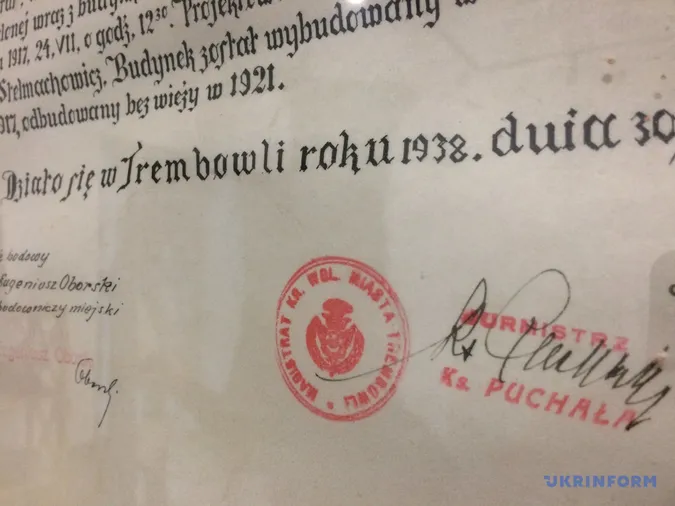 lonej wraz z budyn
1917, 24, VII, o godz, 12³⁰. Projektow
Stelmachowicz. Budynek został wybudowany w
917, odbudowany bez wieży w 1921.
Działo się w Trembowli roku 1938. dnia 30,
k budowy
Eugeniusz Oborski
budowniczy miejski
Eugeniusz Obor
MAGISTRAT KR. WOL. MIASTA TREMBOWLI
BURMISTRZ
Ks. PUCHAŁA
UKRINFORM